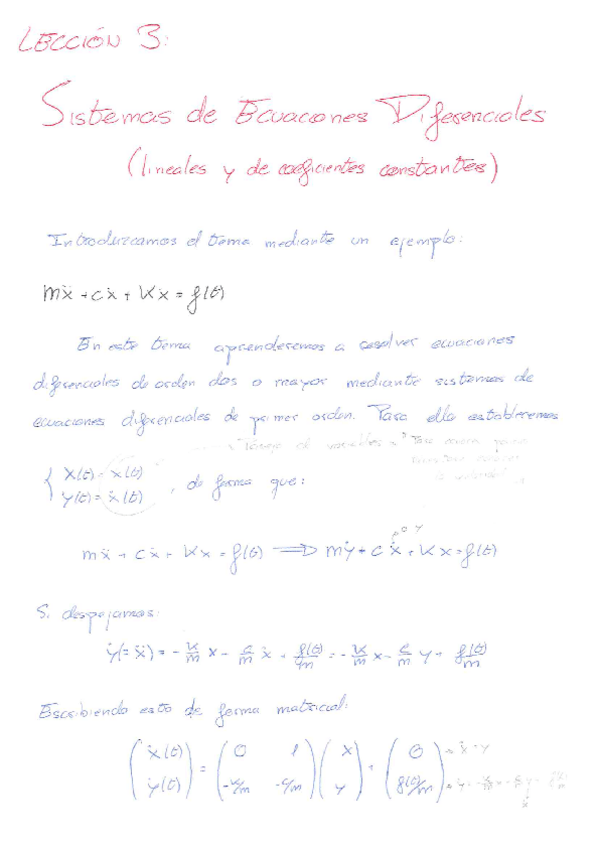 LECCIÓN 3:
Sistemas de Ecuaciones Diferenciales
(lineales y de coeficientes constantes)
Introduzcamos el tema mediante un ejemplo:
mẍ + cẋ + Kx = f(t)
En este tema aprenderemos a resolver ecuaciones
diferenciales de orden dos o mayor mediante sistemas de
ecuaciones diferenciales de primer orden. Para ello estableremos
{ X(t) = x(t)
Y(t) = ẋ(t) , de forma que:
mẍ + cẋ + Kx = f(t) ⟹ mẏ + cẋ + Kx = f(t)
Si despejamos:
ẏ(= ẍ) = -K/m x - c/m ẋ + f(t)/m = -K/m x - c/m y + f(t)/m
Escribiendo esto de forma matricial:
(ẋ(t)) = (0 1) (x) + (0)
(ẏ(t)) (-K/m -c/m) (y) (f(t)/m)